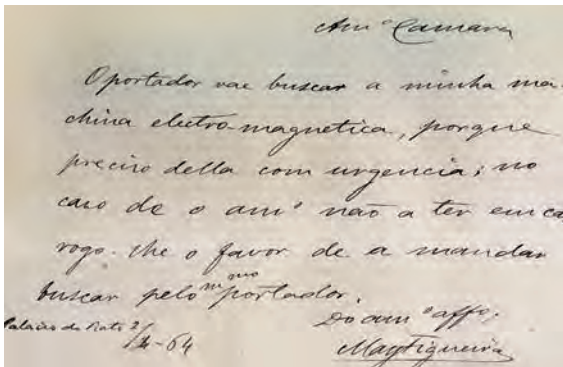 Amº Camara
O portador vae buscar a minha ma-
china electro-magnetica, porque
preciso della com urgencia; no
caso de o amº não a ter em ca
rogo-lhe o favor de a mandar
buscar pelo mmo portador.
Do amº affº.
Palacio do Rato 2/
-64
May Figueira